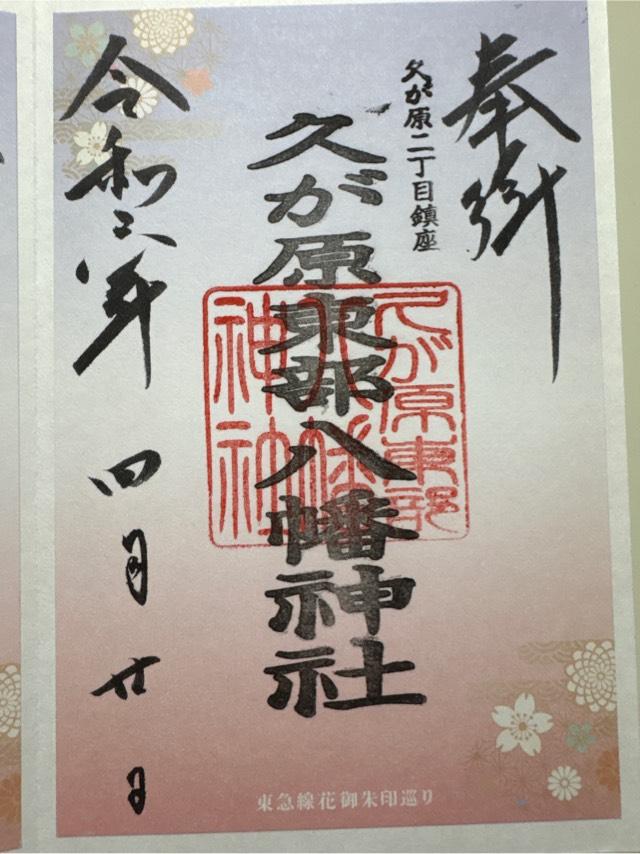 奉拝
久が原二丁目鎮座
久が原東部八幡神社
久が原東部
八幡
神社
令和六年 四月廿日
東急線花御朱印巡り